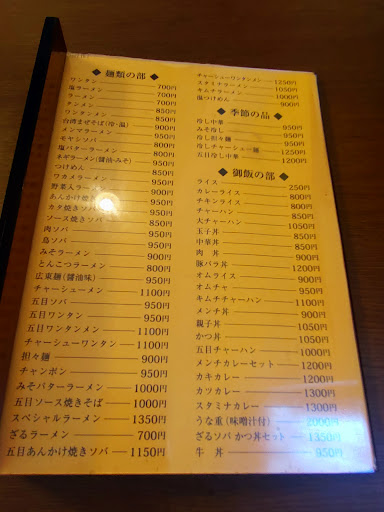 ◆ 麺類の部 ◆
ワンタン 700円
塩ラーメン 700円
ラーメン 700円
タンメン 850円
ワンタンメン 850円
台湾まぜそば(冷・温) 950円
メンマラーメン 900円
モヤシソバ 800円
塩バターラーメン 800円
ネギラーメン(醤油・みそ)
つけめん
ワカメラーメン
野菜ラーメン
あんかけ焼
カタ焼きソバ
ソース焼きソバ
肉ソバ 950円
鳥ソバ 950円
みそラーメン 900円
とんこつラーメン 800円
広東麺(醤油味) 950円
チャーシューメン 1100円
五目ソバ 950円
五目ワンタン 950円
五目ワンタンメン 1100円
チャーシューワンタン 1100円
担々麺 900円
チャンポン 950円
みそバターラーメン 1000円
五目ソース焼きそば 1000円
スペシャルラーメン 1350円
ざるラーメン 700円
五目あんかけ焼きソバ 1150円
チャーシューワンタンメン 1250円
スタミナラーメン 1050円
キムチラーメン 1000円
塩つけめん 900円
◆ 季節の品 ◆
冷し中華 950円
みそ冷し 950円
冷し担々麺 950円
冷しチャーシュー麺 1250円
五目冷し中華 1200円
◆ 御飯の部 ◆
ライス 250円
カレーライス 800円
チキンライス 800円
チャーハン 850円
大チャーハン 1050円
玉子丼
中華丼
肉丼
豚バラ丼 1200円
オムライス
オムチャ
キムチチャーハン 1100円
メンチ丼 900円
親子丼 1050円
かつ丼 1050円
五目チャーハン 1000円
メンチカレーセット 1200円
カキカレー 1200円
カツカレー 1300円
スタミナカレー 1300円
うな重(味噌汁付) 2000円
ざるソバ かつ丼セット 1350円
牛丼 950円